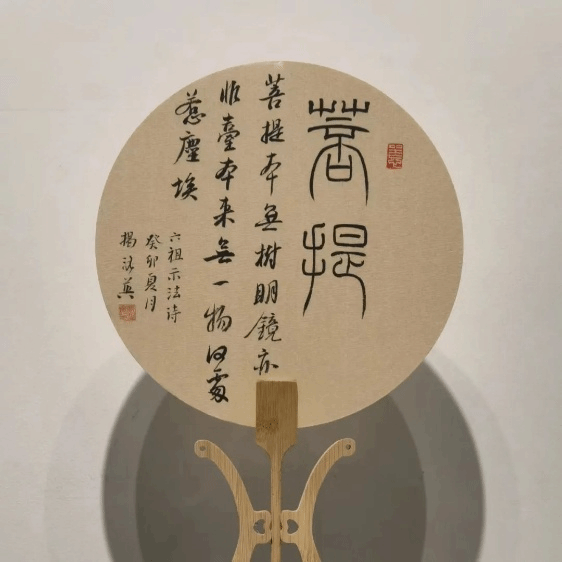 菩提
菩提本無樹明鏡亦
非臺本来無一物何處
惹塵埃
六祖示法诗
癸卯夏月